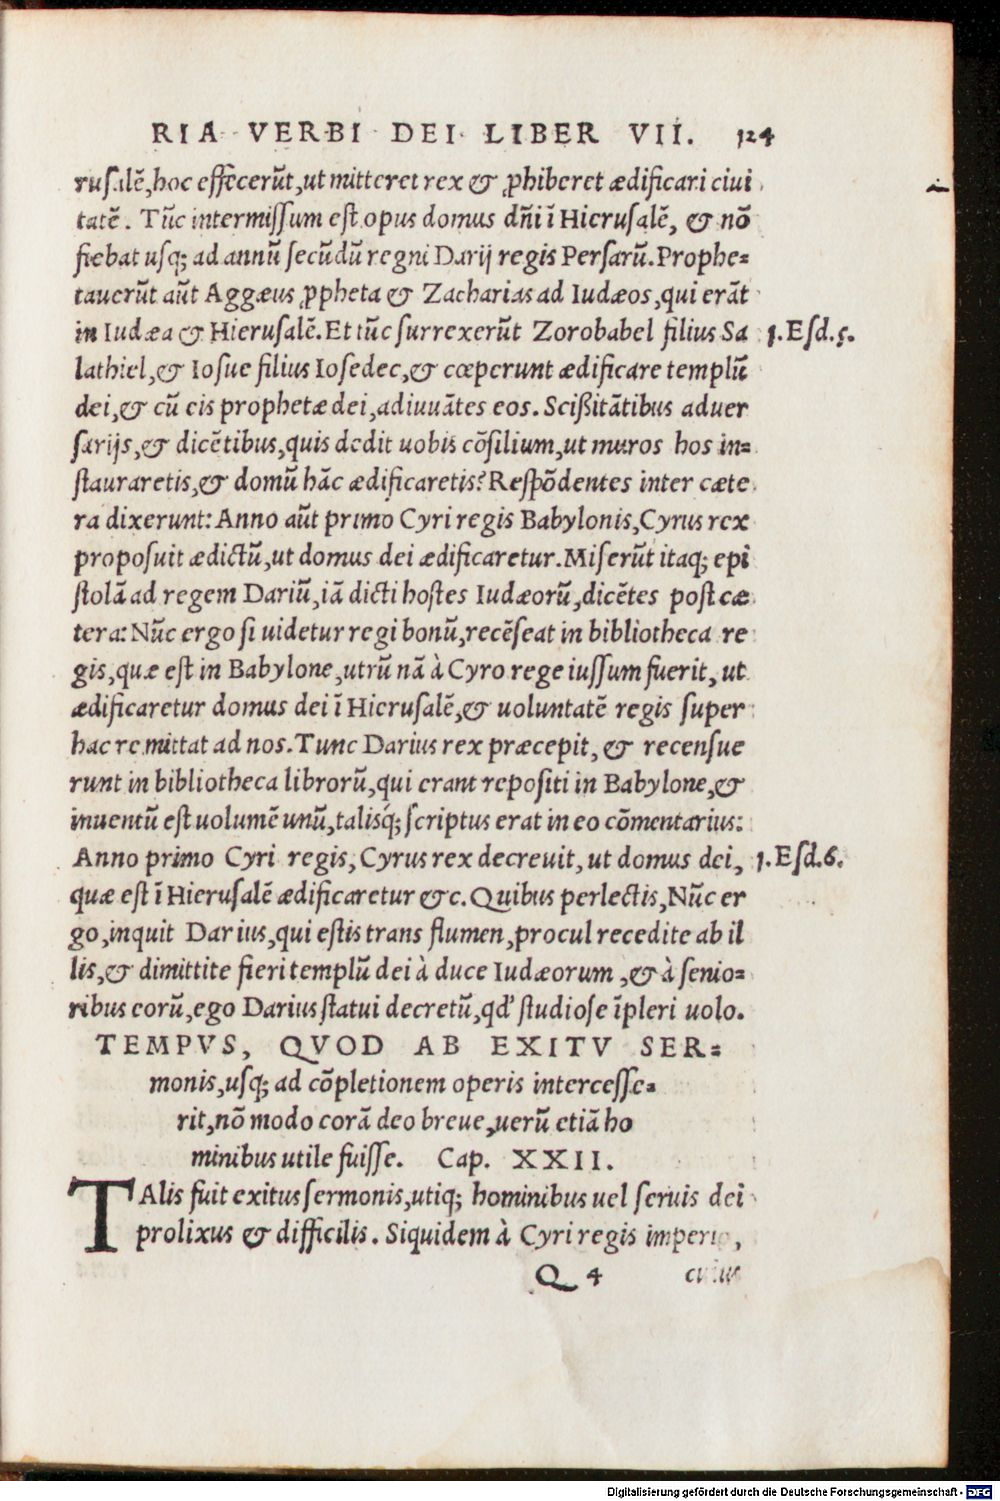 RIA VERBI DEI LIBER VII. 124
rusalẽ, hoc effecerũt, ut mitteret rex & ꝓhiberet ædificari ciui
tatẽ. Tũc intermissum est opus domus dñi ĩ Hierusalẽ, & nõ
fiebat usq; ad annũ secũdũ regni Darij regis Persarũ. Prophe=
tauerũt aũt Aggæus ꝓpheta & Zacharias ad Iudæos, qui erãt
in Iudæa & Hierusalẽ. Et tũc surrexerũt Zorobabel filius Sa
1. Esd. 5.
lathiel, & Iosue filius Iosedec, & cœperunt ædificare templũ
dei, & cũ eis prophetæ dei, adiuuãtes eos. Scißitãtibus aduer
sarijs, & dicẽtibus, quis dedit uobis cõsilium, ut muros hos in=
stauraretis, & domũ hãc ædificaretis? Respõdentes inter cæte
ra dixerunt: Anno aũt primo Cyri regis Babylonis, Cyrus rex
proposuit ædictũ, ut domus dei ædificaretur. Miserũt itaq; epi
stolã ad regem Dariũ, iã dicti hostes Iudæorũ, dicẽtes post cæ
tera: Nũc ergo si uidetur regi bonũ, recẽseat in bibliotheca re
gis, quæ est in Babylone, utrũ nã à Cyro rege iussum fuerit, ut
ædificaretur domus dei ĩ Hierusalẽ, & uoluntatẽ regis super
hac re mittat ad nos. Tunc Darius rex præcepit, & recensue
runt in bibliotheca librorũ, qui erant repositi in Babylone, &
inuentũ est uolumẽ unũ, talisq́; scriptus erat in eo cõmentarius:
Anno primo Cyri regis, Cyrus rex decreuit, ut domus dei,
1. Esd. 6.
quæ est ĩ Hierusalẽ ædificaretur &c. Quibus perlectis, Nũc er
go, inquit Darius, qui estis trans flumen, procul recedite ab il
lis, & dimittite fieri templũ dei à duce Iudæorum, & à senio=
ribus eorũ, ego Darius statui decretũ, qd' studiose ĩpleri uolo.
TEMPVS, QVOD AB EXITV SER=
monis, usq; ad cõpletionem operis intercesse=
rit, nõ modo corã deo breue, uerũ etiã ho
minibus utile fuisse. Cap. XXII.
TAlis fuit exitus sermonis, utiq; hominibus uel seruis dei
prolixus & difficilis. Siquidem à Cyri regis imperio,
Q 4 cuius
Digitalisierung gefördert durch die Deutsche Forschungsgemeinschaft - DFG